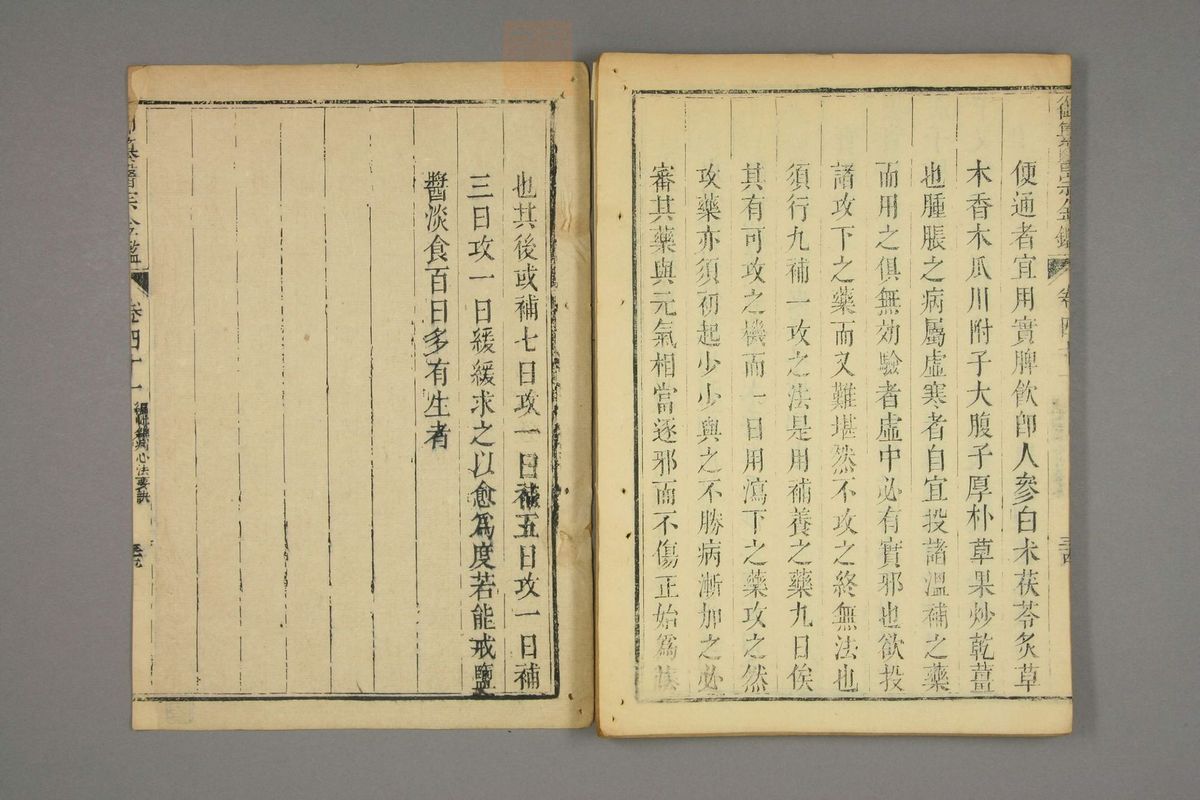 便通者宜用實脾飮卽人參白朮茯苓炙草
木香木瓜川附子大腹子厚朴草果炒乾薑
也腫脹之病屬虛寒者自宜投諸溫補之藥
而用之俱無効驗者虛中必有實邪也欲投
諸攻下之藥而又難堪然不攻之終無法也
須行九補一攻之法是用補養之藥九日俟
其有可攻之機而一日用瀉下之藥攻之然
攻藥亦須初起少少與之不勝病漸加之必
審其藥與元氣相當逐邪而不傷正始爲法
也其後或補七日攻一日補五日攻一日補
三日攻一日緩緩求之以愈爲度若能戒鹽
醬淡食百日多有生者
纂醫宗金鑑
卷四十一
編輯雜病心法要訣